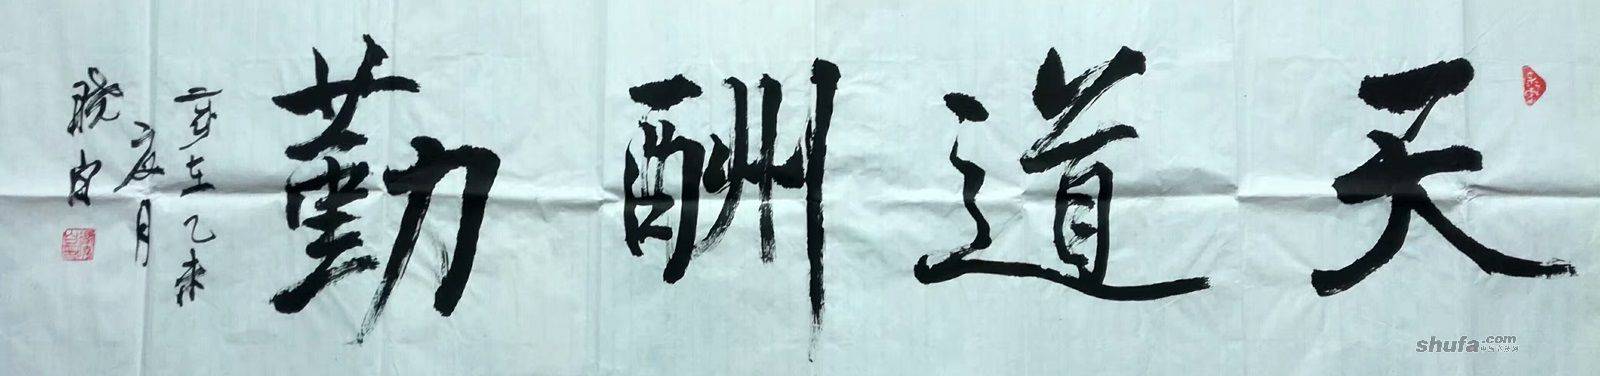 天道酬勤
岁在乙未
夏月
晓白
shufa.com